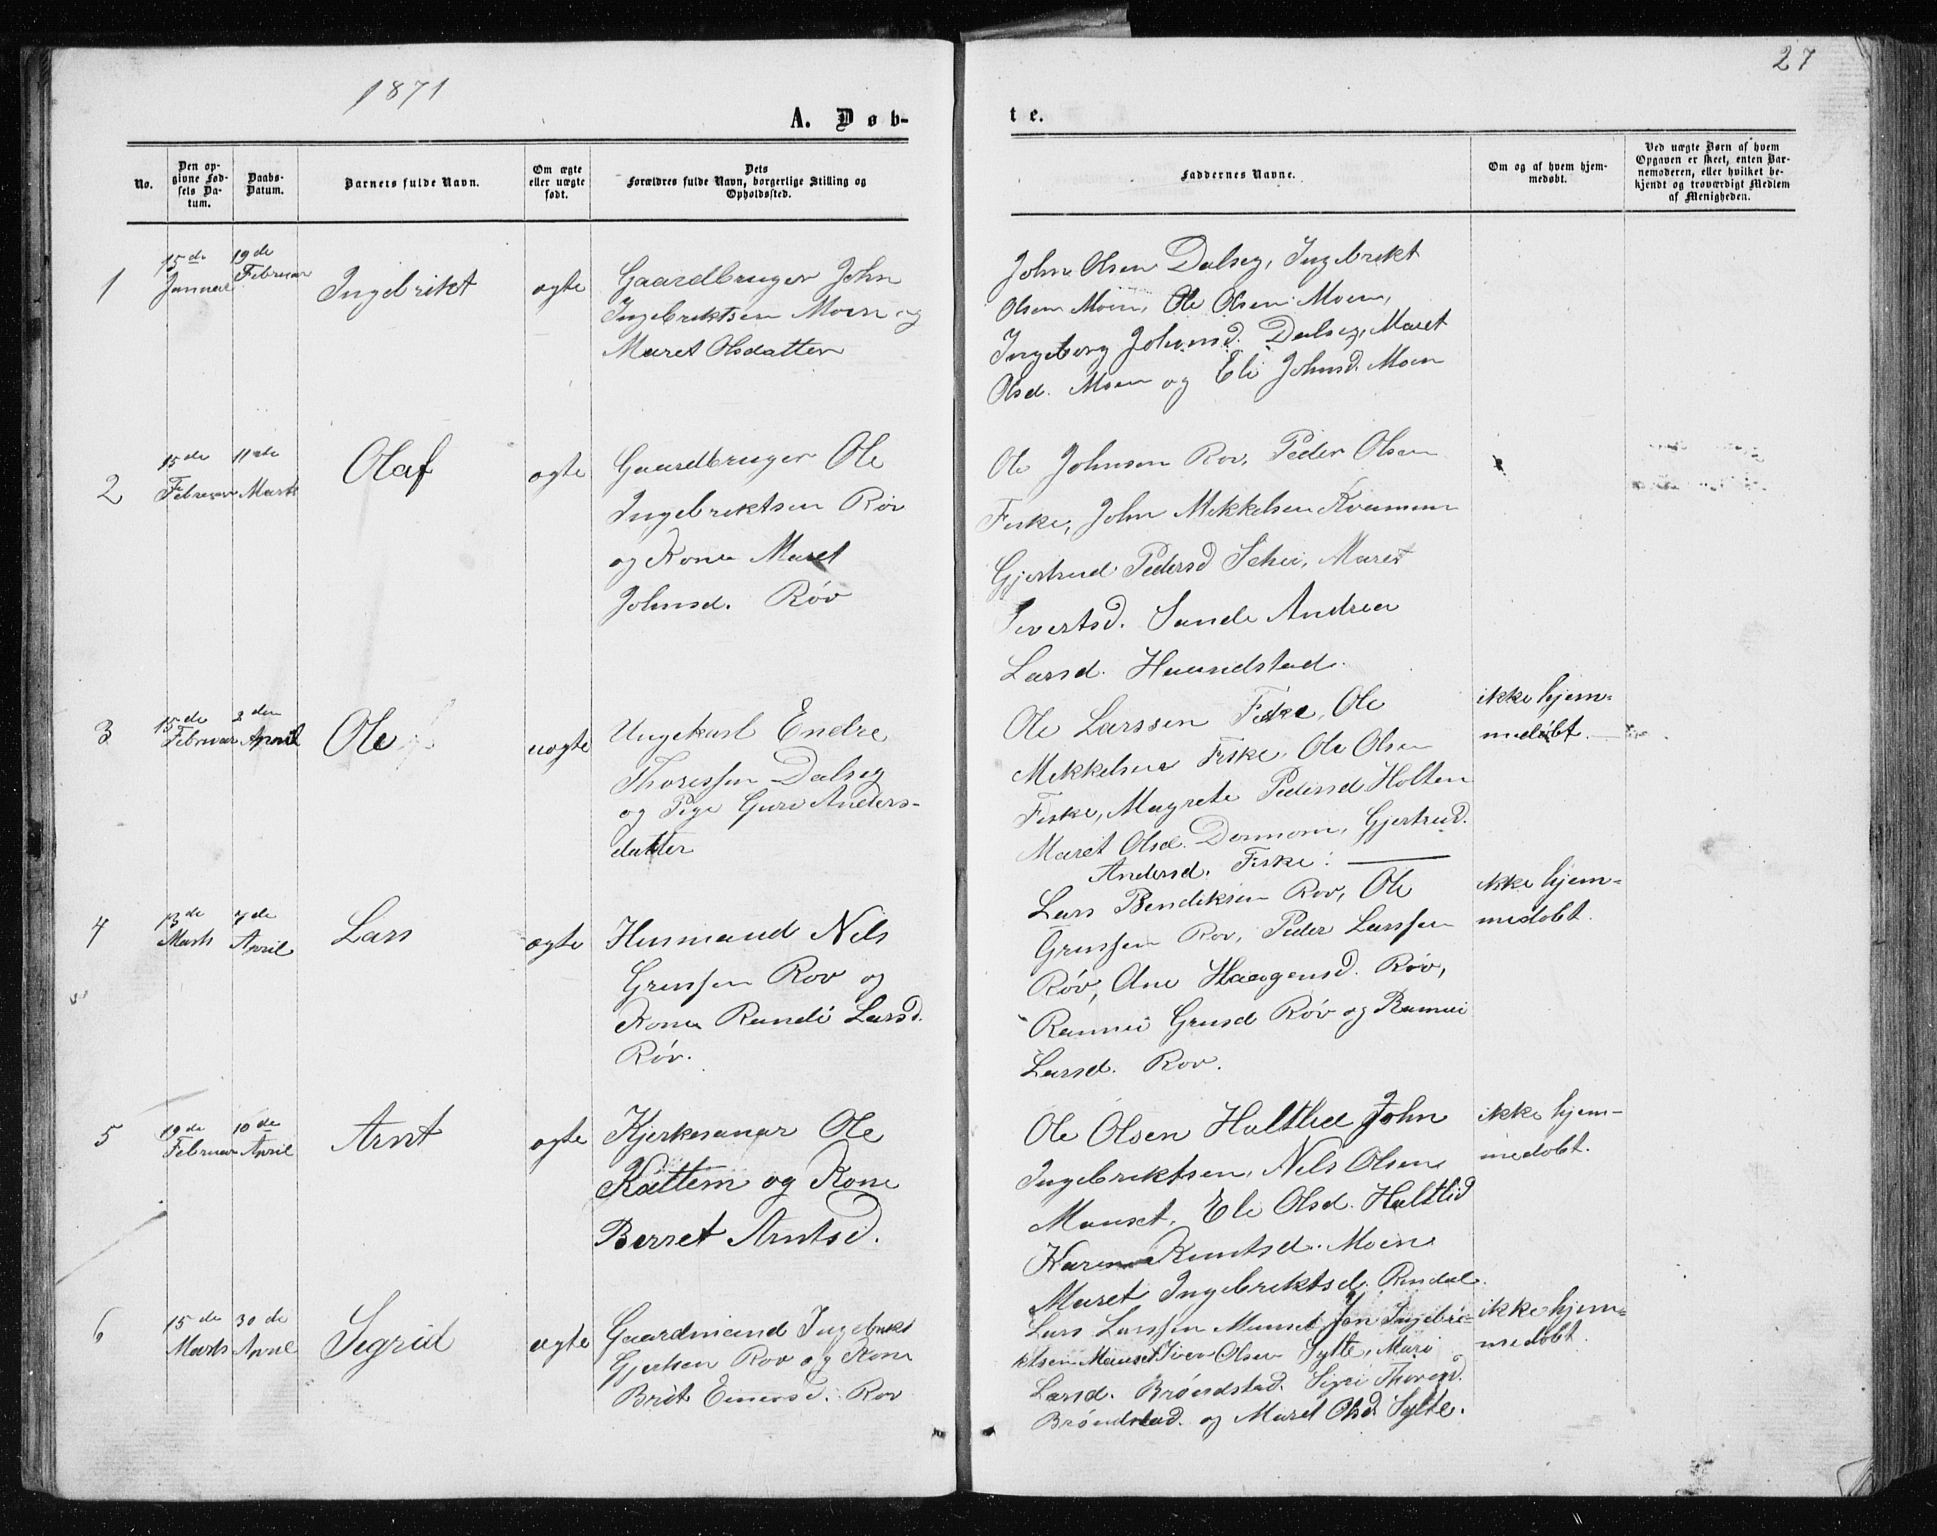 1871
27
A. Døb-
te.
No.
Den op-
givne Fød-
sels Da-
tum.
Daabs-
Datum.
Barnets fulde Navn.
Om ægte
eller uægte
født.
Dets
Forældres fulde Navn, borgerlige Stilling og
Opholdssted.
Faddernes Navne.
Om og af hvem hjem-
medøbt.
Ved uægte Børn af hvem
Opgaven er skeet, enten Bar-
nemoderen, eller hvilket be-
kjendt og troværdigt Medlem
af Menigheden.
1
15de
Januar
19de
Februar
Ingebrikt
ægte
Gaardbruger John
Ingebriktsen Moen og
Maret Olsdatter
John Olsen Dalseg, Ingebrikt
Olsen Moen, Ole Olsen Moen,
Ingeborg Johnsd. Dalseg, Maret
Olsd. Moen og Eli Johnsd. Moen
2
15de
Februar
11de
Marts
Olaf
ægte
Gaardbruger Ole
Ingebriktsen Røv
og Kone Maret
Johnsd. Røv
Ole Johnsen Rov, Peder Olsen
Fiske, John Mikkelsen
Gjertrud Pedersd Schei, Maret
Sivertsd. Sande Andrea
Larsd. Haandstad.
3
15de
Februar
3den
April
Ole
uægte
Ungekarl Endre
Thoressen Dalseg
og Pige Guri Anders-
datter
Ole Larssen Fiske, Ole
Mikkelsen Fiske, Ole Olsen
Fiske, Magrete Pedersd Holten
Maret Olsd. Dønnem, Gjertrud.
Andersd. Fiske.
ikke hjem-
medøbt.
4
13de
Marts
7de
April
Lars
ægte
Husmand Nils
Grussen Rov og
Kone Randi Larsd.
Røv.
Lars Bendiksen Rov, Ole
Grussen Rov, Peder Larssen
Røv, Ane Haagensd. Røv,
Rannei Grusd Røv og Rannei
Larsd. Rov.
ikke hjem-
medøbt.
5
19de
Februar
10de
April
Arnt
ægte
Kjerkesanger Ole
Kattem og Kone
Berret Arntsd.
Ole Olsen Haltlid John
Ingebriktsen, Nils Olsen
Mauset, Eli Olsd. Haltlid
Karen Knutsd. Moen
Maret Ingebriktsd. Rindal.
ikke hjem-
medøbt.
6
15de
Marts
30de
April
Segrid
ægte
Gaardmand Ingebrikt
Gjertsen Rov og Kone
Brit Einersd. Rov
Lars Larssen Mauset Jon Ingebri-
ktsen Mauset Iver Olsen Sylte, Mari
Larsd. Brøndstad. Sigri Thoresd.
Brøndstad. og Maret Olsd Sylte.
ikke hjem-
medøbt.